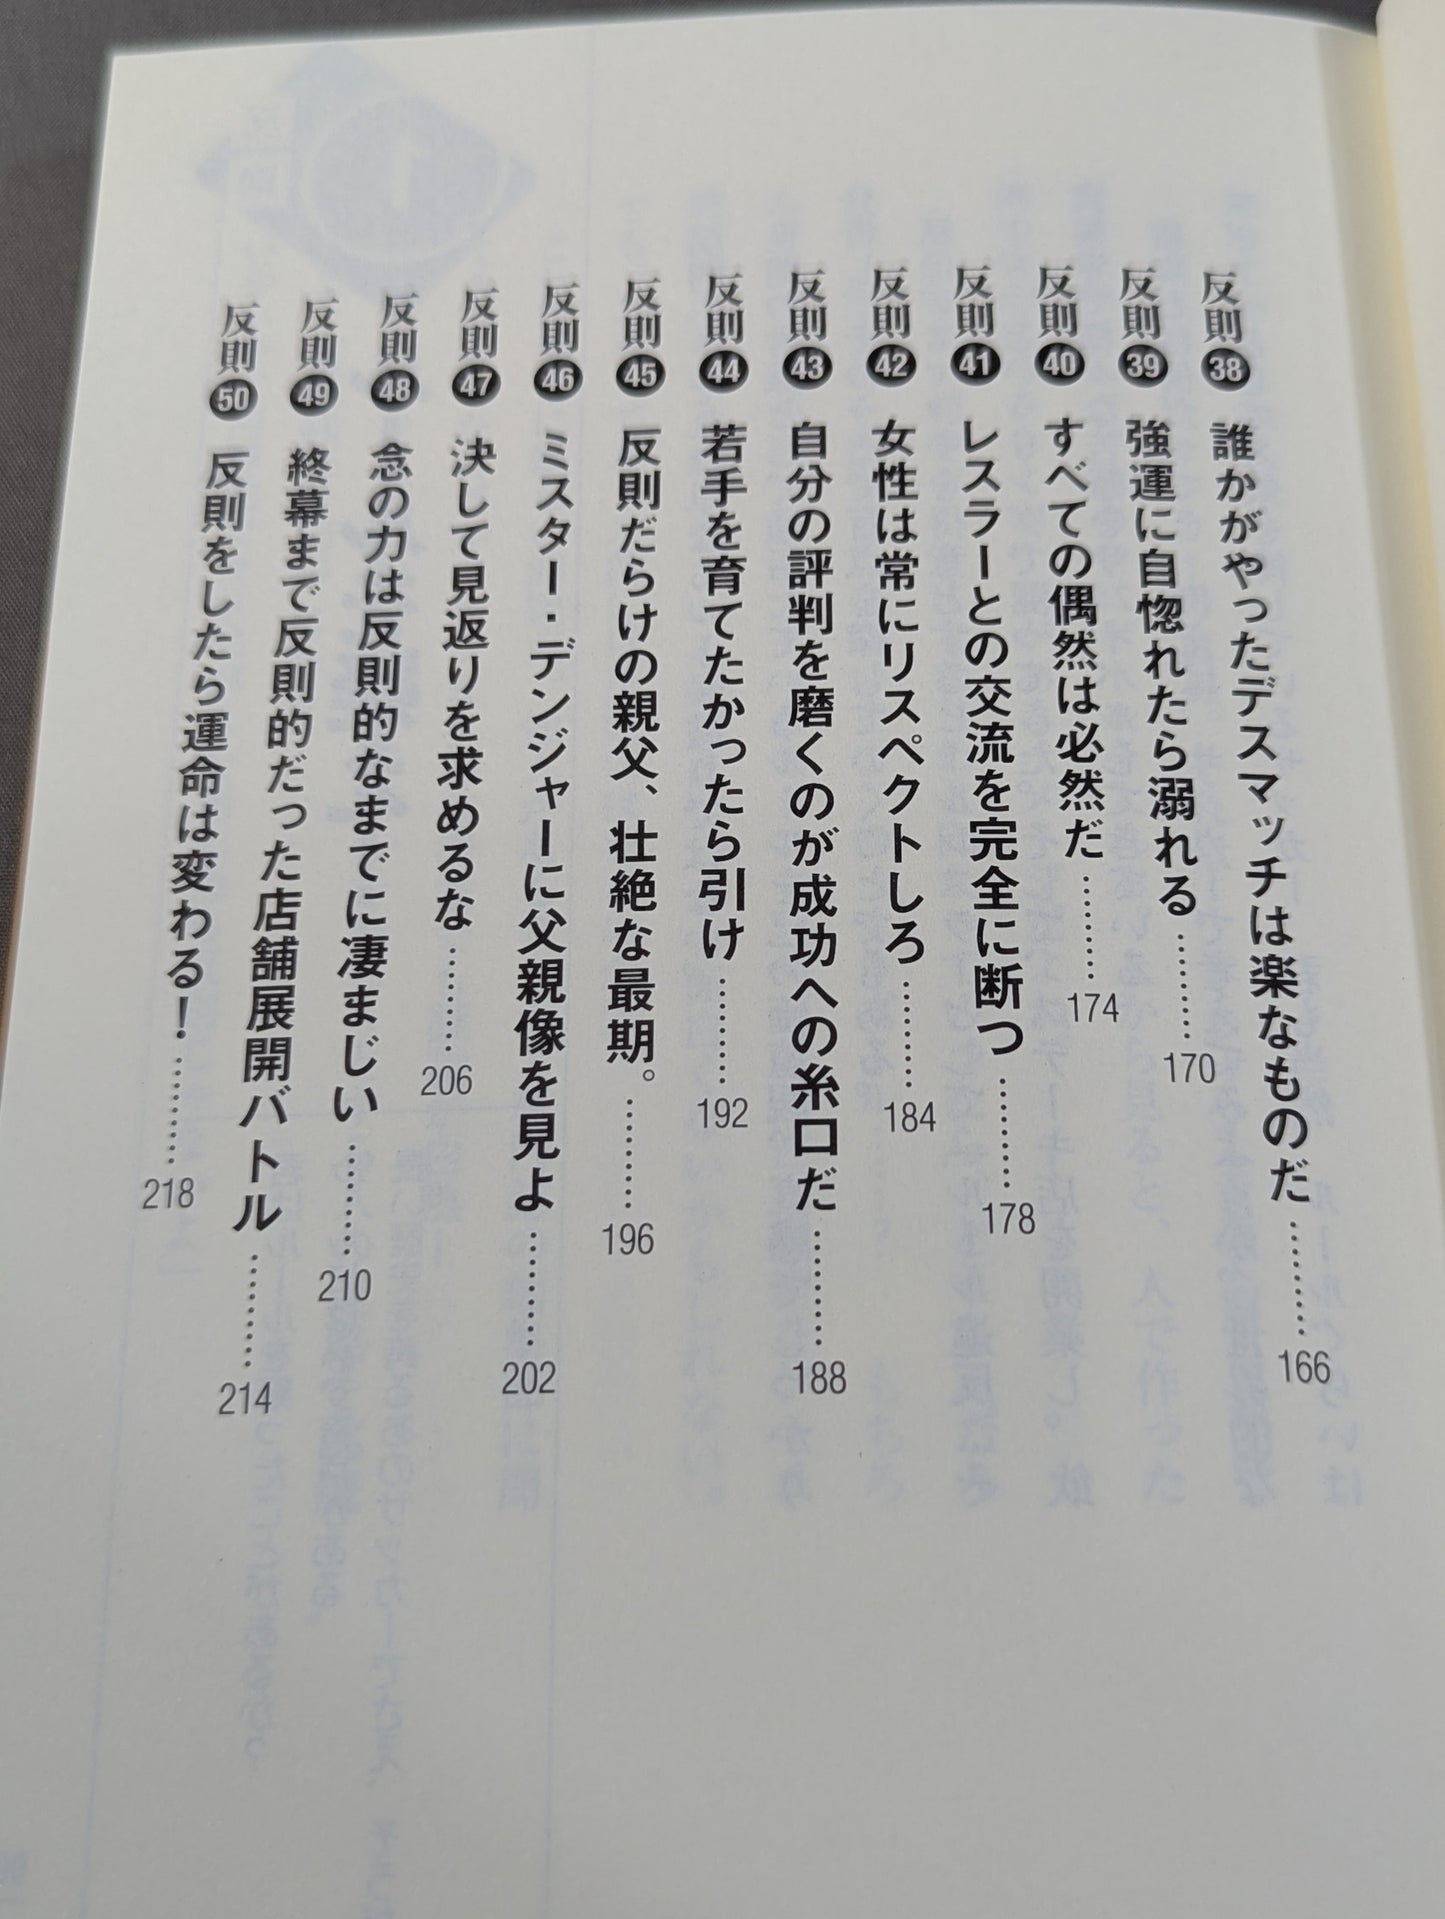 反則38 誰かがやったデスマッチは楽なものだ………166
反則39 強運に自惚れたら溺れる………170
反則40 すべての偶然は必然だ………174
反則41 レスラーとの交流を完全に断つ………178
反則42 女性は常にリスペクトしろ………184
反則43 自分の評判を磨くのが成功への糸口だ………188
反則44 若手を育てたかったら引け………192
反則45 反則だらけの親父、壮絶な最期。………196
反則46 ミスター・デンジャーに父親像を見よ………202
反則47 決して見返りを求めるな………206
反則48 念の力は反則的なまでに凄まじい………210
反則49 終幕まで反則的だった店舗展開バトル………214
反則50 反則をしたら運命は変わる！………218